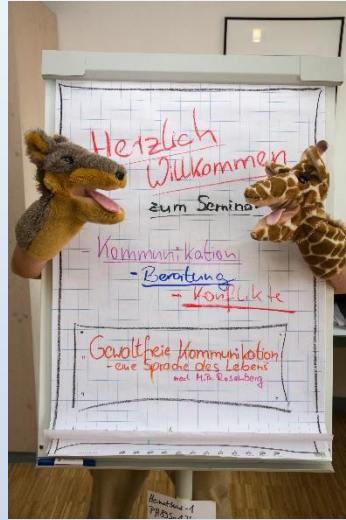 Herzlich
Willkommen
zum Semina
- Kommunikation
- Beratung
- Konflikte
Gewaltfreie Kommunikation
- eine Sprache des Lebens
nach M.B. Rosenberg